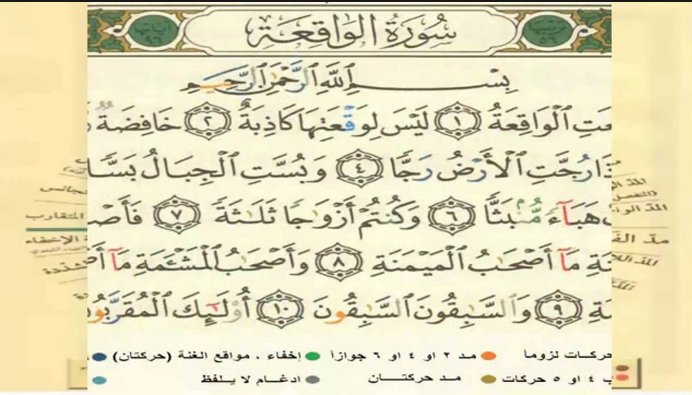 سُورَةُ الوَاقِعَة
بِسْمِ اللَّهِ الرَّحْمَٰنِ الرَّحِيمِ
عَتِ الْوَاقِعَةُ ١ لَيْسَ لِوَقْعَتِهَا كَاذِبَةٌ ٢ خَافِضَةٌ
ذَا رُجَّتِ الْأَرْضُ رَجًّا ٤ وَبُسَّتِ الْجِبَالُ بَسًّا
هَبَاءً مُّنۢبَثًّا ٦ وَكُنتُمْ أَزْوَاجًا ثَلَاثَةً ٧ فَأَصْ
نَةِ مَا أَصْحَابُ الْمَيْمَنَةِ ٨ وَأَصْحَابُ الْمَشْئَمَةِ مَا أَصْ
ةِ ٩ وَالسَّابِقُونَ السَّابِقُونَ ١٠ أُوْلَٰئِكَ الْمُقَرَّبُو
حركات لزوماً ● مد ٢ او ٤ او ٦ جوازاً ● إخفاء ، مواقع الغنة (حركتان) ●
ب ٤ او ٥ حركات ● مد حركتان ● ادغام لا يلفظ ●